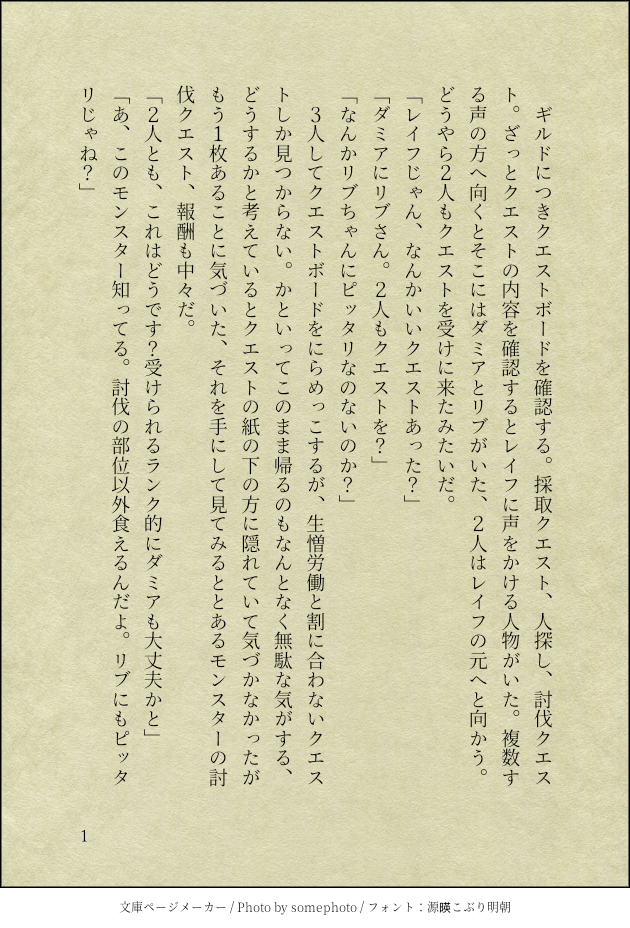 ギルドにつきクエストボードを確認する。採取クエスト、人探し、討伐クエス
ト。ざっとクエストの内容を確認するとレイフに声をかける人物がいた。複数す
る声の方へ向くとそこにはダミアとリブがいた、２人はレイフの元へと向かう。
どうやら２人もクエストを受けに来たみたいだ。
「レイフじゃん、なんかいいクエストあった？」
「ダミアにリブさん。２人もクエストを？」
「なんかリブちゃんにピッタリなのないのか？」
３人してクエストボードをにらめっこするが、生憎労働と割に合わないクエス
トしか見つからない。かといってこのまま帰るのもなんとなく無駄な気がする、
どうするかと考えているとクエストの紙の下の方に隠れていて気づかなかったが
もう１枚あることに気づいた、それを手にして見てみるととあるモンスターの討
伐クエスト、報酬も中々だ。
「２人とも、これはどうです？受けられるランク的にダミアも大丈夫かと」
「あ、このモンスター知ってる。討伐の部位以外食えるんだよ。リブにもピッタ
リじゃね？」
1
文庫ページメーカー / Photo by somephoto / フォント：源暎こぶり明朝